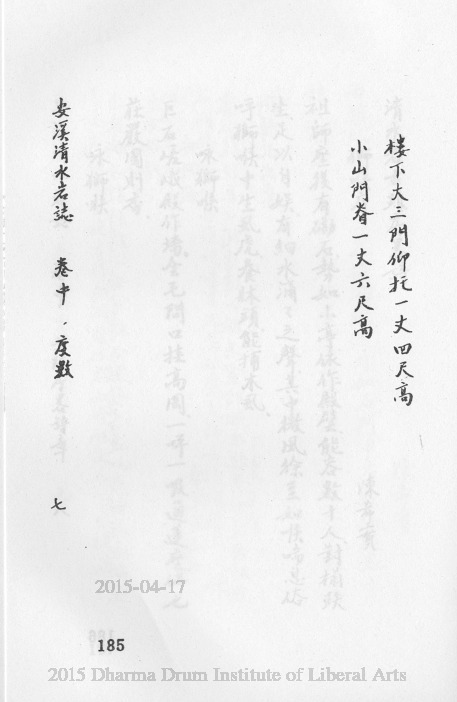 楼下大三門仰托一丈四尺高
小山門眷一丈六尺高
安溪清水岩誌 卷中．度數 七
2015-04-17
185
2015 Dharma Drum Institute of Liberal Arts